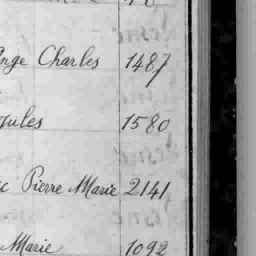 Ange Charles 1487
Jules 1580
c Pierre Marie 2141
Marie 1092